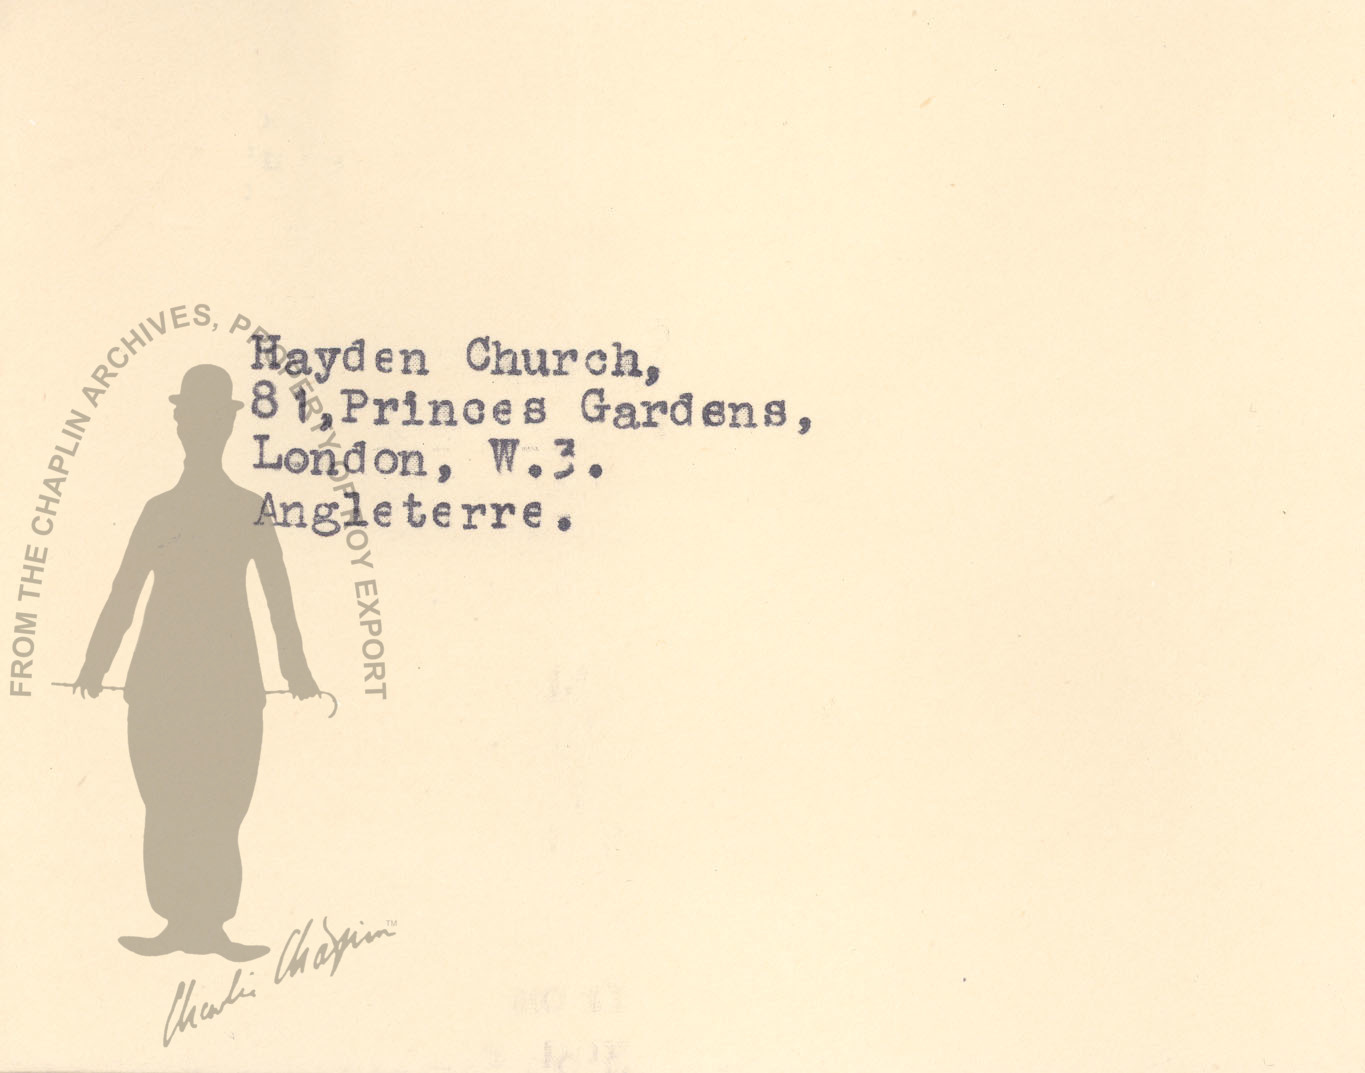 FROM THE CHAPLIN ARCHIVES, PROPERTY OF ROY EXPORT
Hayden Church,
81,Princes Gardens,
London, W.3.
Angleterre.
Charlie Chaplin™